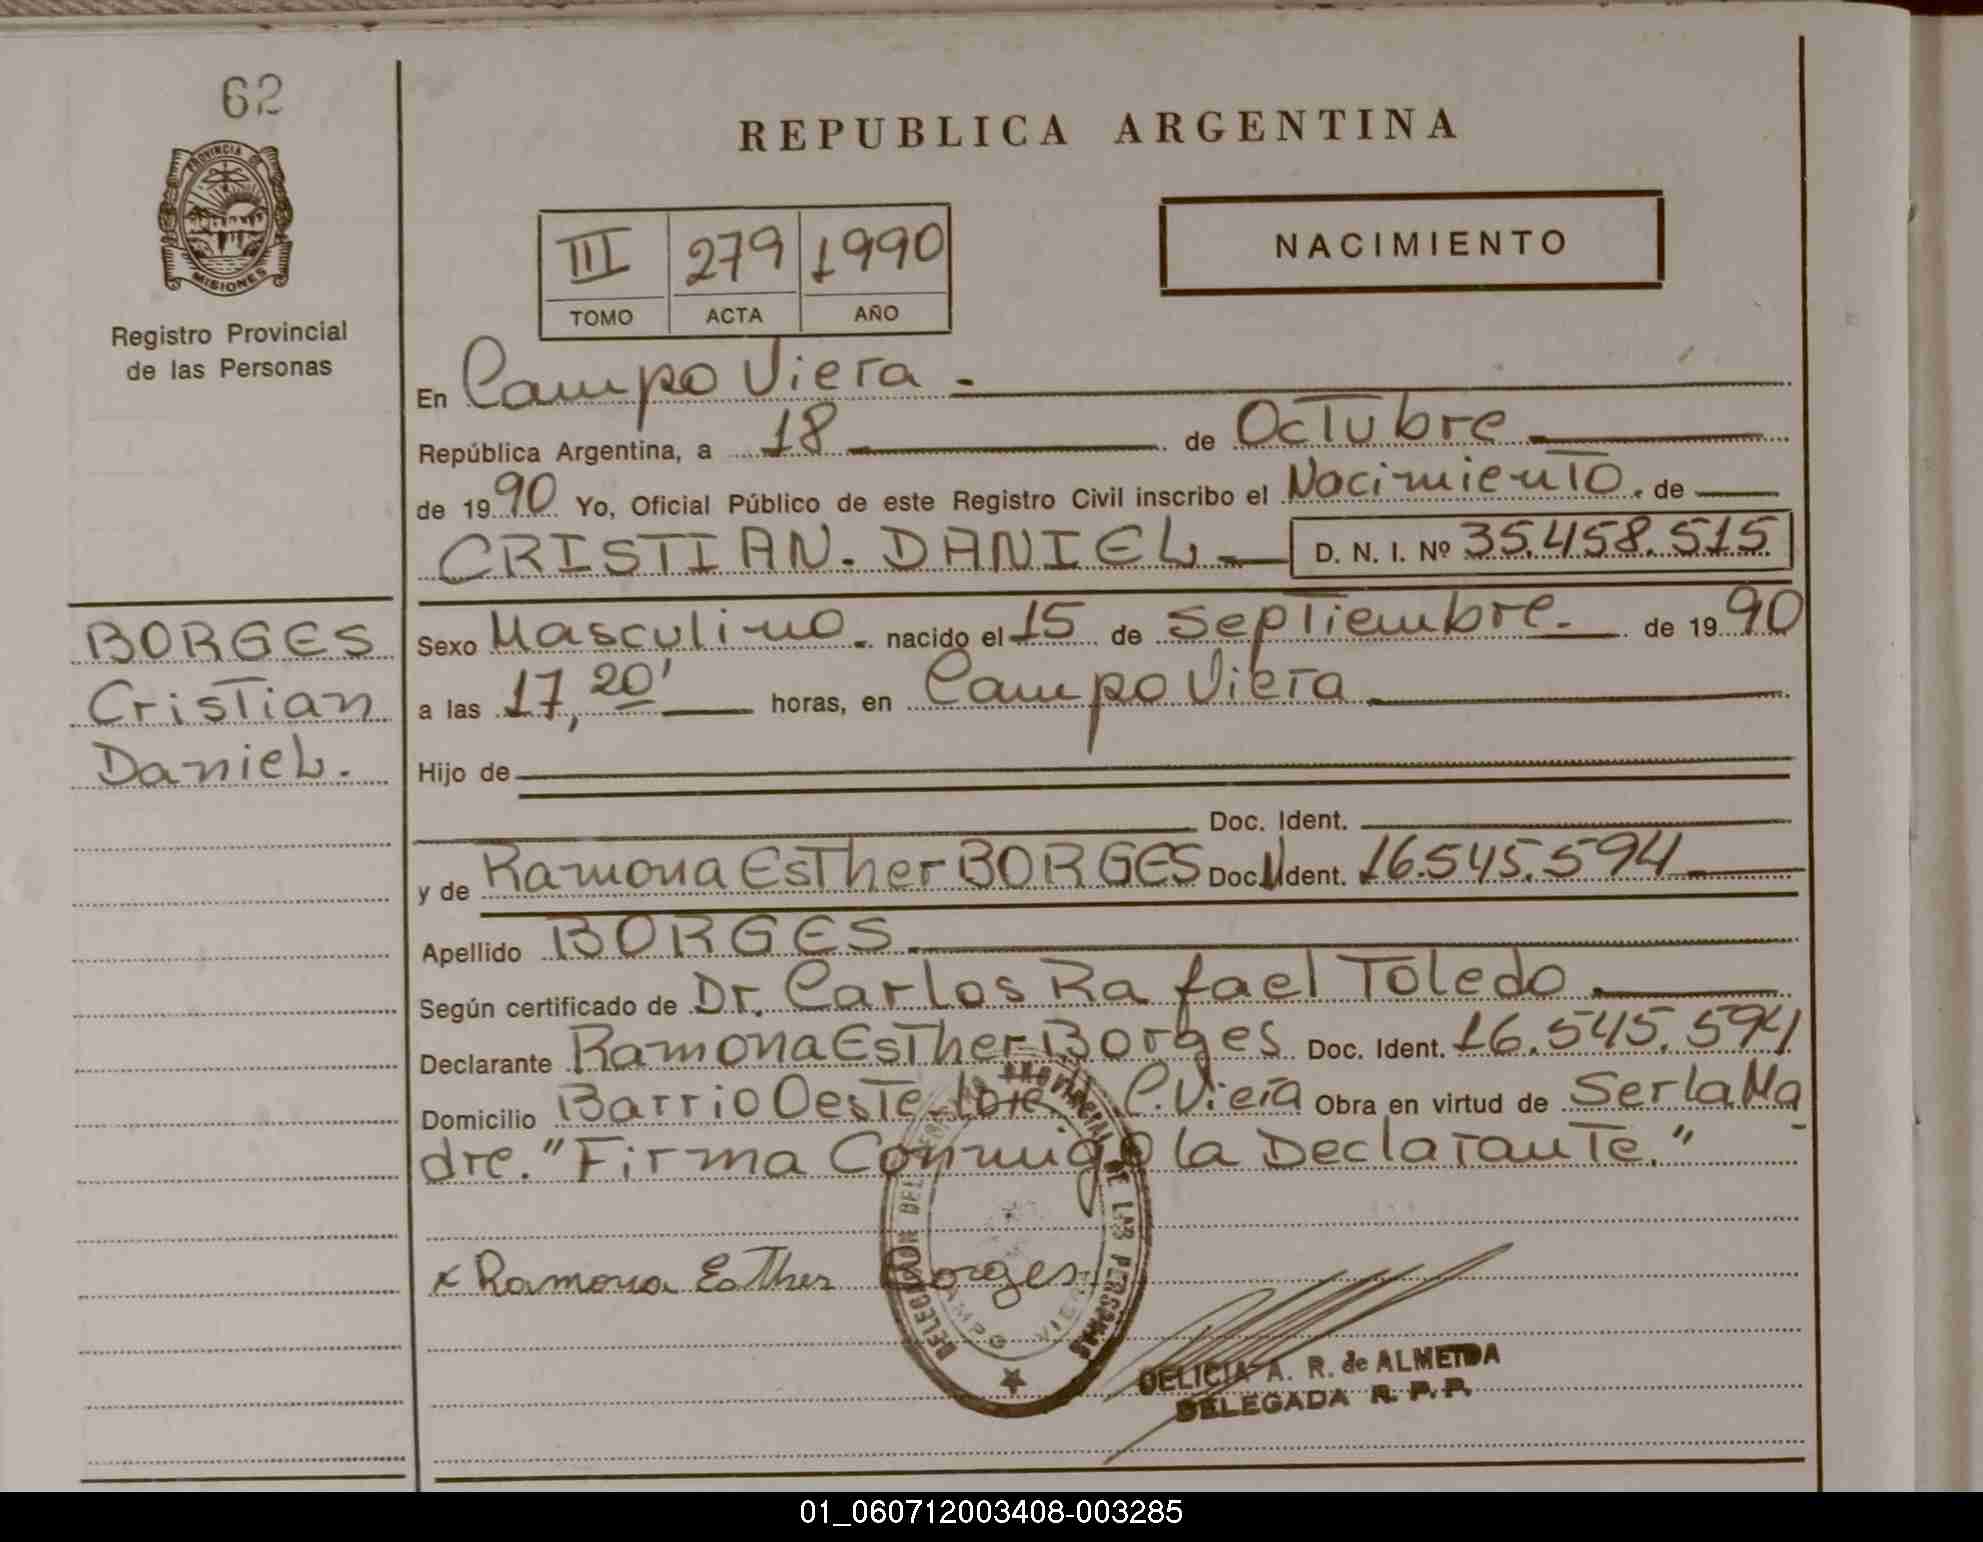 62
PROVINCIA DE
MISIONES
Registro Provincial
de las Personas
REPUBLICA ARGENTINA
III 279 1990
TOMO ACTA AÑO
NACIMIENTO
En Campo Viera -
República Argentina, a 18 de Octubre
de 1990 Yo, Oficial Público de este Registro Civil inscribo el Nacimiento. de
CRISTIAN. DANIEL - D. N. I. Nº 35.458.515
BORGES
Cristian
Daniel.
Sexo Masculino. nacido el 15 de Septiembre. de 1990
a las 17,20' horas, en Campo Viera
Hijo de
Doc. Ident.
y de Ramona Esther BORGES Doc. Ident. 16.545.594
Apellido BORGES.
Según certificado de Dr. Carlos Rafael Toledo.
Declarante Ramona Esther Borges Doc. Ident. 16.545.594
Domicilio Barrio Oeste C. Viera Obra en virtud de Ser la Ma
dre. "Firma Conmigo la Declarante."
x Ramona Esther Borges
DELEGACION DEL REGISTRO PROVINCIAL DE LAS PERSONAS
CAMPO VIERA
DELICIA A. R. de ALMEIDA
DELEGADA R. P. P.
01_060712003408-003285